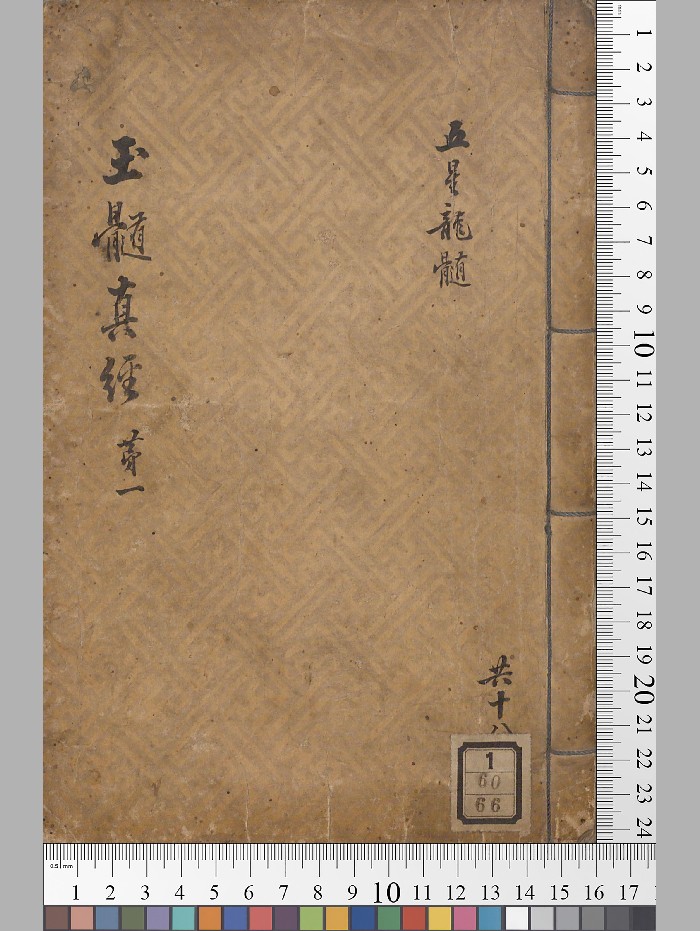 五星龍髓
共十八
玉髓真經 苐一
1
60
66
0.5 mm
1 2 3 4 5 6 7 8 9 10 11 12 13 14 15 16 17
1 2 3 4 5 6 7 8 9 10 11 12 13 14 15 16 17 18 19 20 21 22 23 24